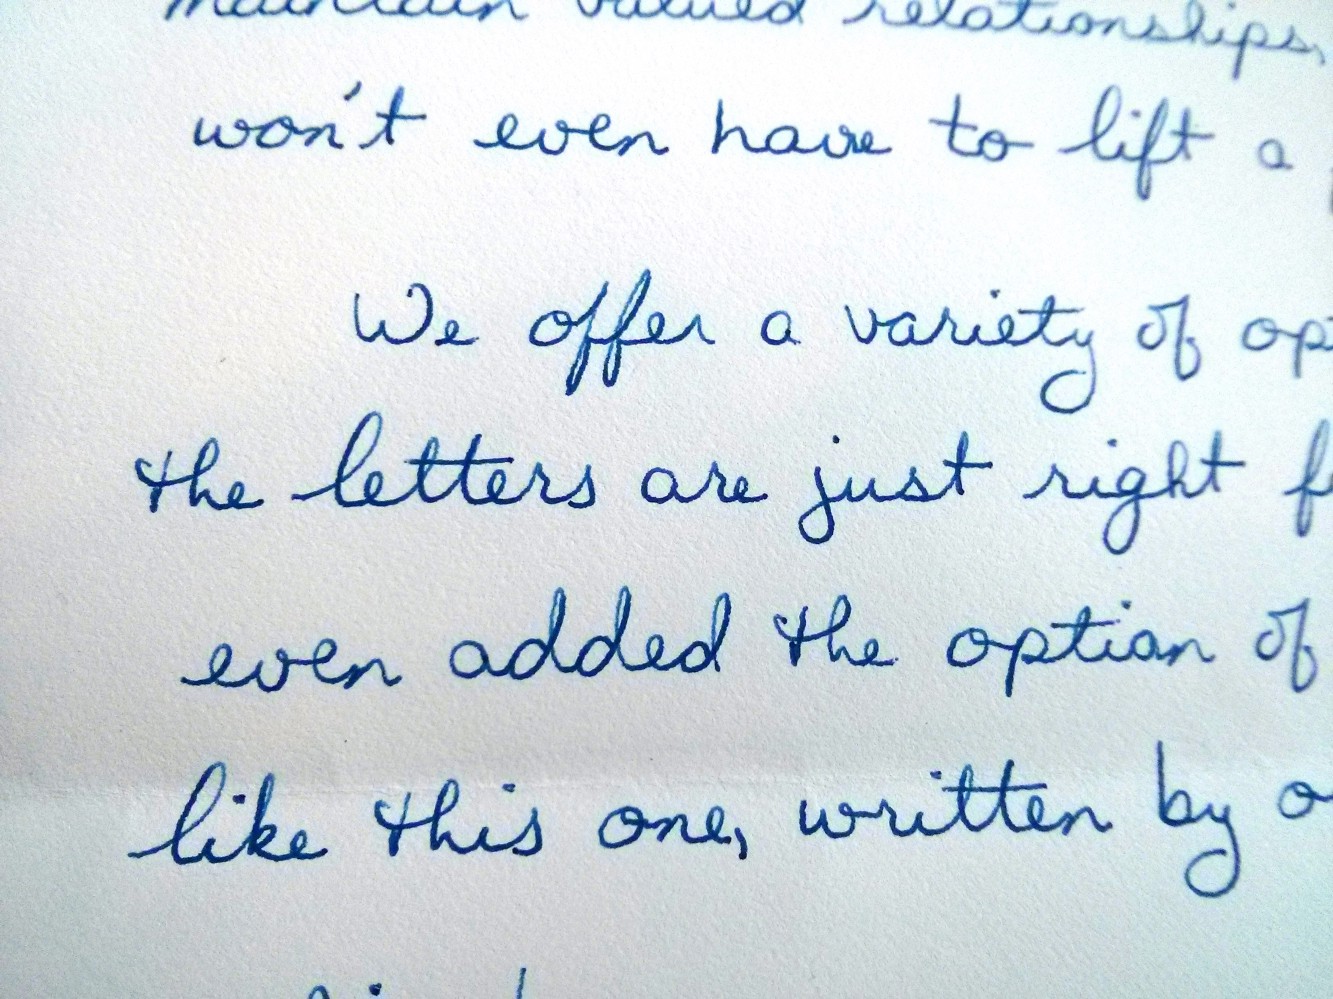 maintain valued relationships,
won't even have to lift a
We offer a variety of
the letters are just right
even added the option of
like this one, written by